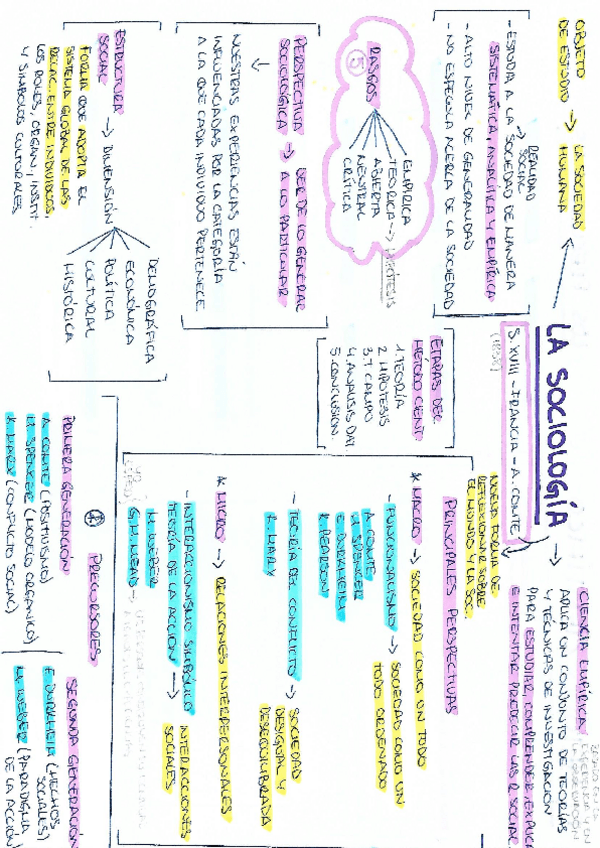 LA SOCIOLOGÍA
S. XVIII - FRANCIA - A. COMTE
OBJETO DE ESTUDIO → LA SOCIEDAD HUMANA
REALIDAD SOCIAL
- ESTUDIA A LA SOCIEDAD DE MANERA
SISTEMÁTICA, ANALÍTICA Y EMPÍRICA
- ALTO NIVEL DE GENERALIDAD
- NO ESPECULA ACERCA DE LA SOCIEDAD
RASGOS
5
EMPÍRICA
TEÓRICA → HIPÓTESIS
ABIERTA
NEUTRAL
CRÍTICA
PERSPECTIVA SOCIOLÓGICA → VER DE LO GENERAL A LO PARTICULAR
NUESTRAS EXPERIENCIAS ESTÁN
INFLUENCIADAS POR LA CATEGORÍA
A LA QUE CADA INDIVIDUO PERTENECE
ESTRUCTURA SOCIAL → DIMENSIÓN
DEMOGRÁFICA
ECONÓMICA
POLÍTICA
CULTURAL
HISTÓRICA
FORMA QUE ADOPTA EL
SISTEMA GLOBAL DE LAS
RELAC. ENTRE INDIVIDUOS,
LOS ROLES, ORGAN., INSTIT.
Y SÍMBOLOS CULTURALES
ETAPAS DEL
MÉTODO CIENT.
1. TEORÍA
2. HIPÓTESIS
3. T. CAMPO
4. ANALISIS DAT.
5. CONCLUSIÓN.
NUEVA FORMA DE
REFLEXIONAR SOBRE
EL MUNDO Y LA SOC.
→ CIENCIA EMPÍRICA
APLICA UN CONJUNTO DE TEORÍAS
Y TÉCNICAS DE INVESTIGACIÓN
PARA ESTUDIAR, COMPRENDER, EXPLICA
E INTENTAR PREDECIR LAS R. SOCIAL
PRINCIPALES PERSPECTIVAS
* MACRO → SOCIEDAD COMO UN TODO
- FUNCIONALISMO → SOCIEDAD COMO UN
TODO ORDENADO
A. COMTE
H. SPENCER
E. DURKHEIM
K. PEARSON
- TEORÍA DEL CONFLICTO → SOCIEDAD
DESIGUAL Y
DESEQUILIBRADA
K. MARX
* MICRO → RELACIONES INTERPERSONALES
- INTERACCIONISMO SIMBÓLICO
TEORÍA DE LA ACCIÓN → INTERACCIONES
SOCIALES
M. WEBER
G. H. MEAD
PRECURSORES
PRIMERA GENERACIÓN
A. COMTE (POSITIVISMO)
H. SPENCER (MODELO ORGÁNICO)
K. MARX (CONFLICTO SOCIAL)
SEGUNDA GENERACIÓN
E. DURKHEIM (HECHOS
SOCIALES)
M. WEBER (PARADIGMA
DE LA ACCIÓN)